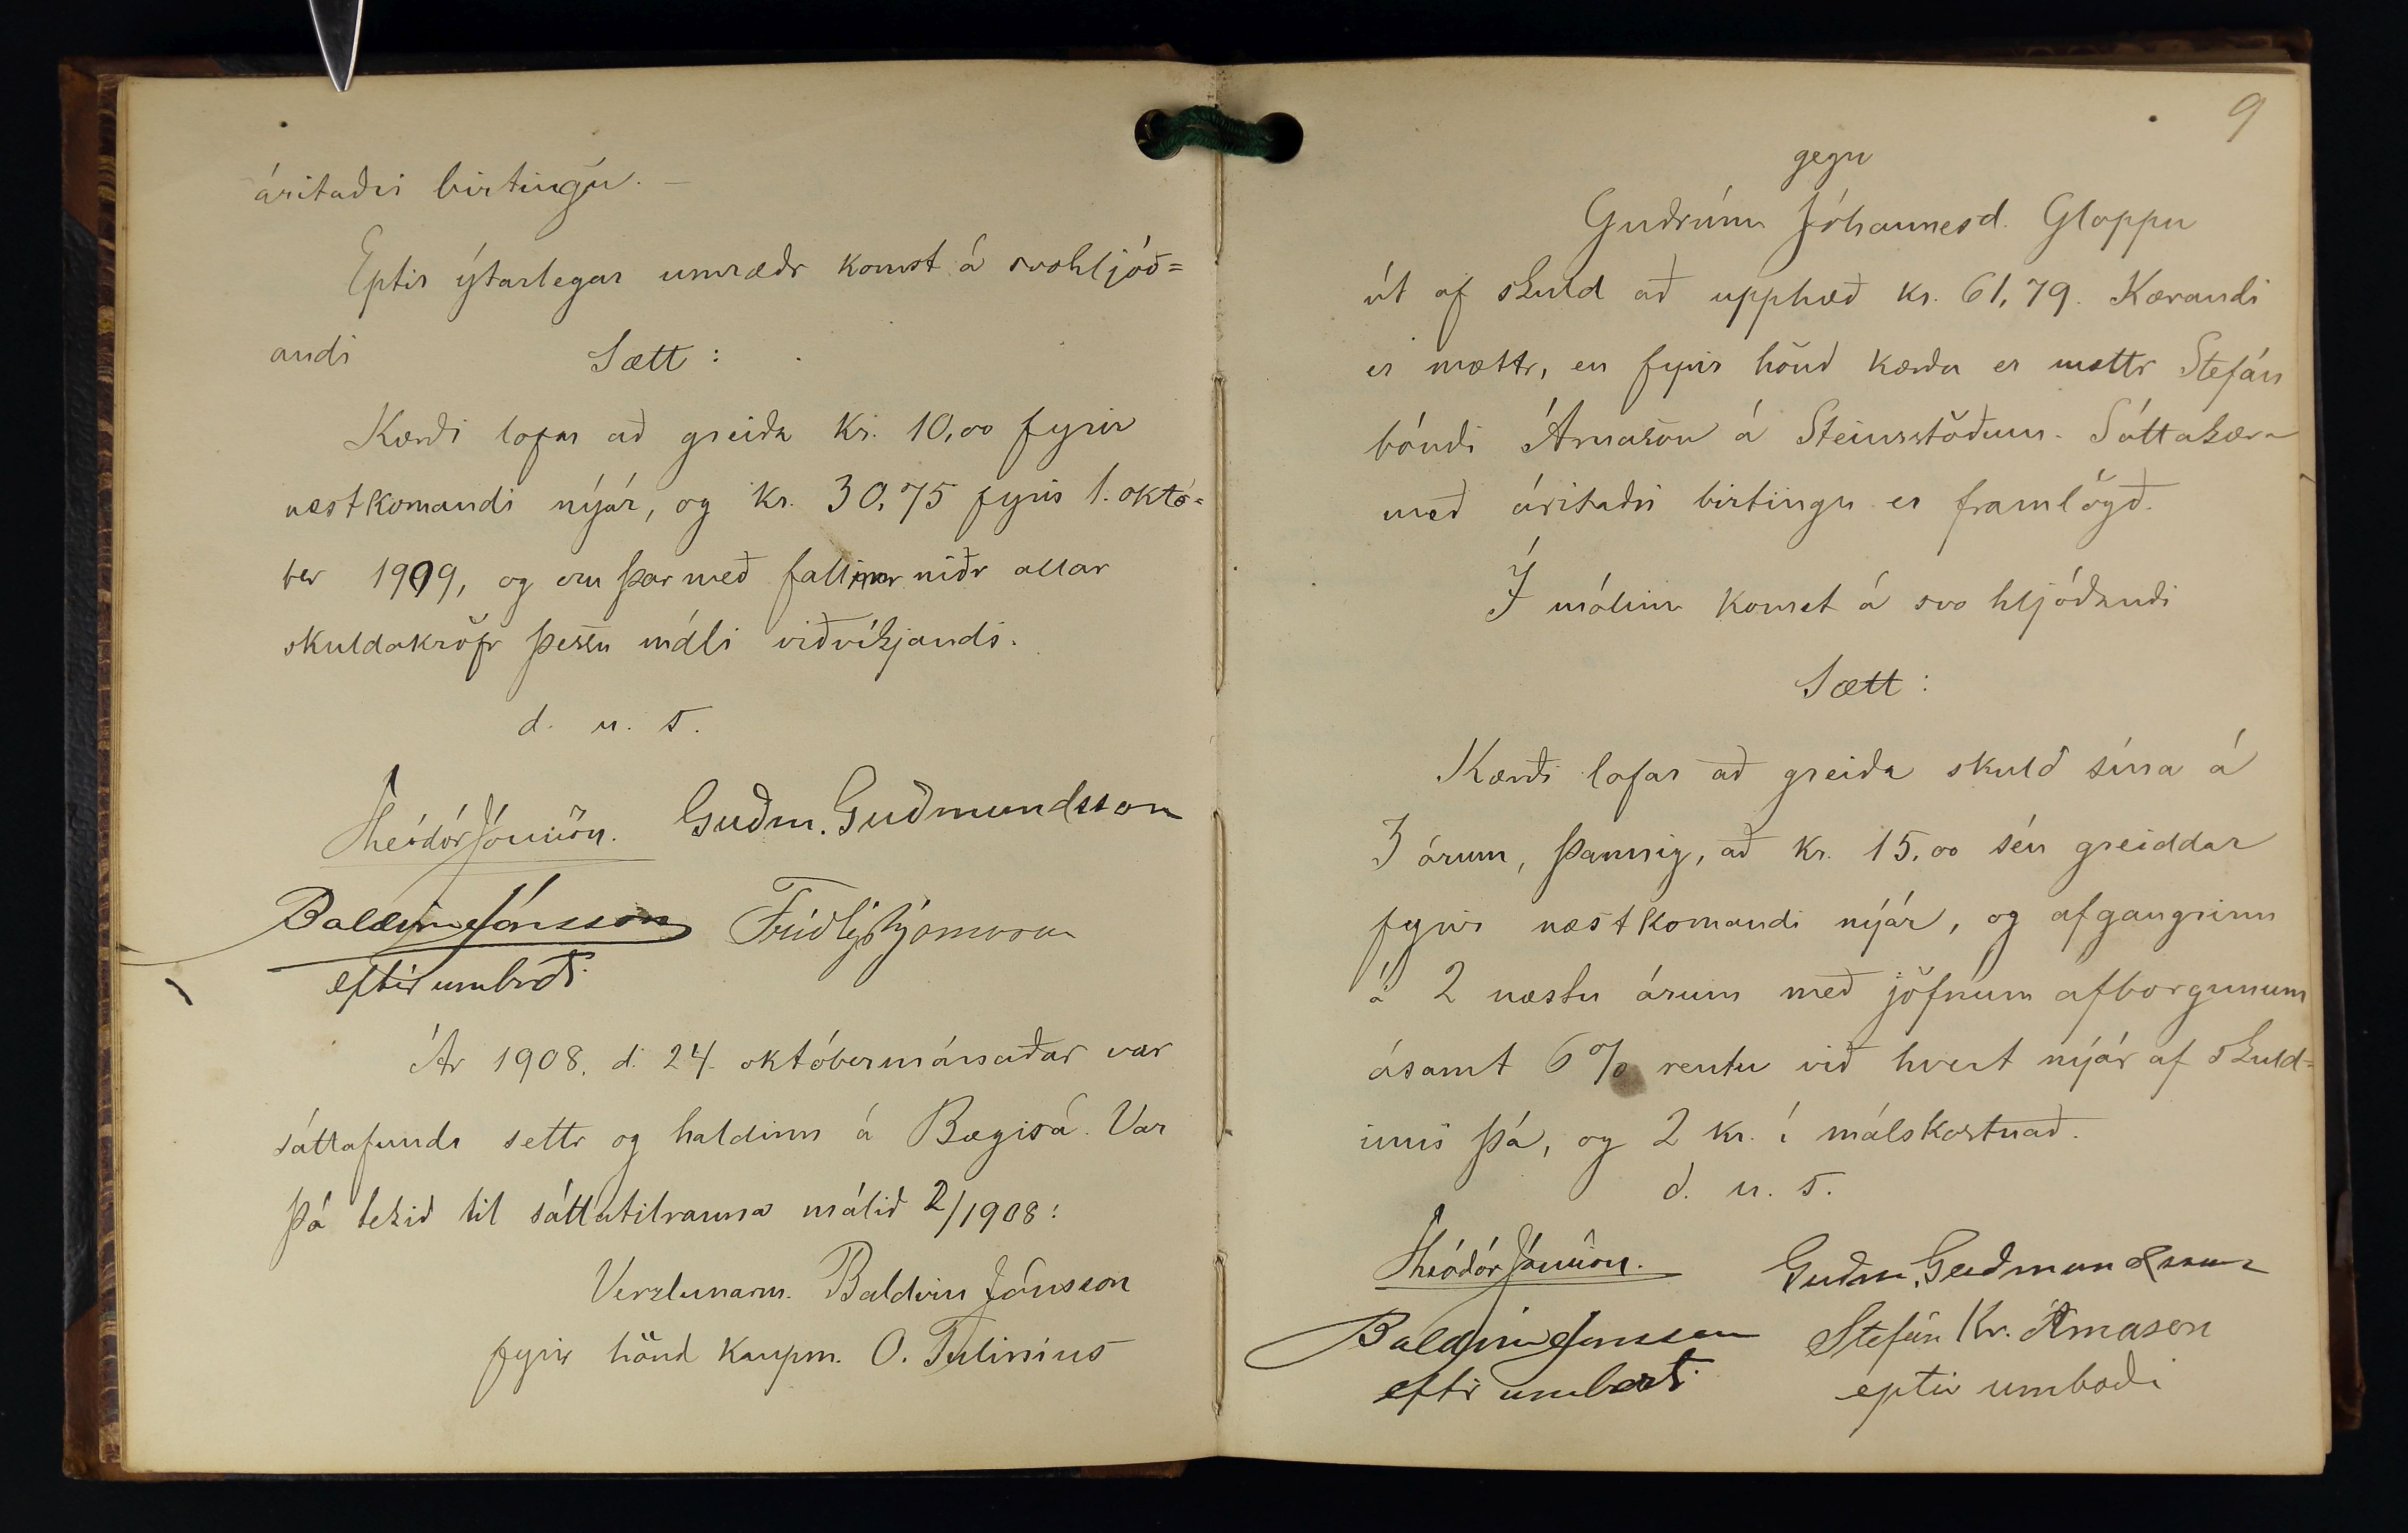 áritaðri birtingu. —
Eptir ýtarlegar umræðr komst á svohljóð=
andi Sætt:
Kærði lofar að greiða kr. 10,00 fyrir
næstkomandi nýár, og kr. 30,75 fyrir 1. októ=
ber 1909, og eru þar með fallnar niðr allar
skuldakröfr þessu máli viðvíkjandi.
d. u. s.
Theódór Jónsson. Guðm. Guðmundsson
Baldvin Jónsson
eftir umboði
Ár 1908, d. 24. októbermánaðar var
sáttafundr settr og haldinn á Bægisá. Var
þá tekið til sáttatilrauna málið 2/1908:
Verzlunarm. Baldvin Jónsson
fyrir hönd kaupm. O. Tulinius
9
gegn
Guðrúnu Jóhannesd. Gloppu
út af skuld að upphæð kr. 61,79. Kærandi
er mættr, en fyrir hönd kærða er mættr Stefán
bóndi Árnason á Steinsstöðum. Sáttakæra
með áritaðri birtingu er framlögð.
Í málinu komst á svo hljóðandi
Sætt:
Kærði lofar að greiða skuld sína á
3 árum, þannig, að kr. 15,00 séu greiddar
fyrir næstkomandi nýár, og afganginn
á 2 næstu árum með jöfnum afborgunum
ásamt 6% rentu við hvert nýár af skuld=
inni þá, og 2 kr. í málskostnað.
d. u. s.
Theódór Jónsson. Guðm. Guðmundsson
Baldvin Jónsson Stefán Kr. Árnason
eftir umboði eptir umboði